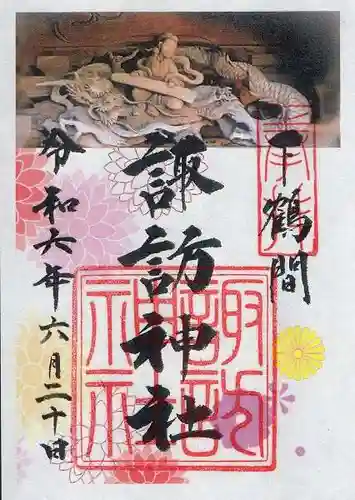 下鶴間
諏訪神社
令和六年六月二十日
諏訪
神社